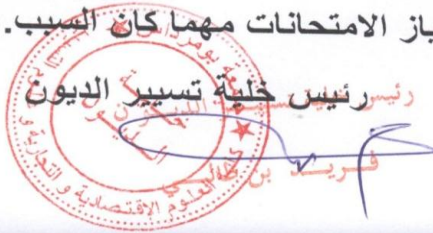 ياز الامتحانات مهما كان السبب.
رئيس خلية تسيير الديون
رئيس
فريد بن طالبي
العلوم الاقتصادية و التجارية و